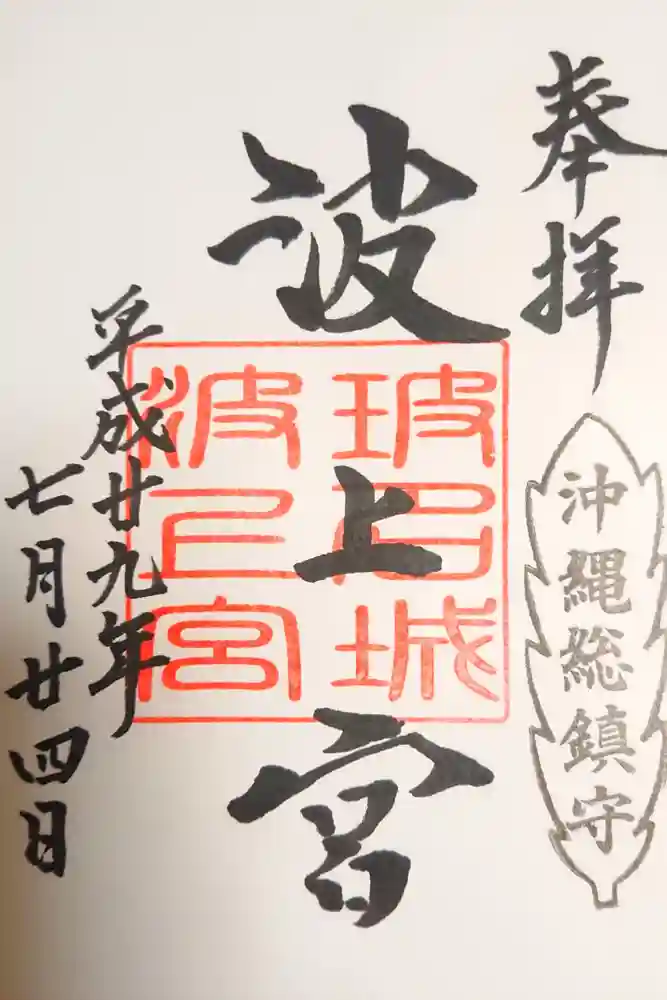 奉拝
沖縄総鎮守
波上宮
玻名城
波上宮
平成廿九年
七月廿四日